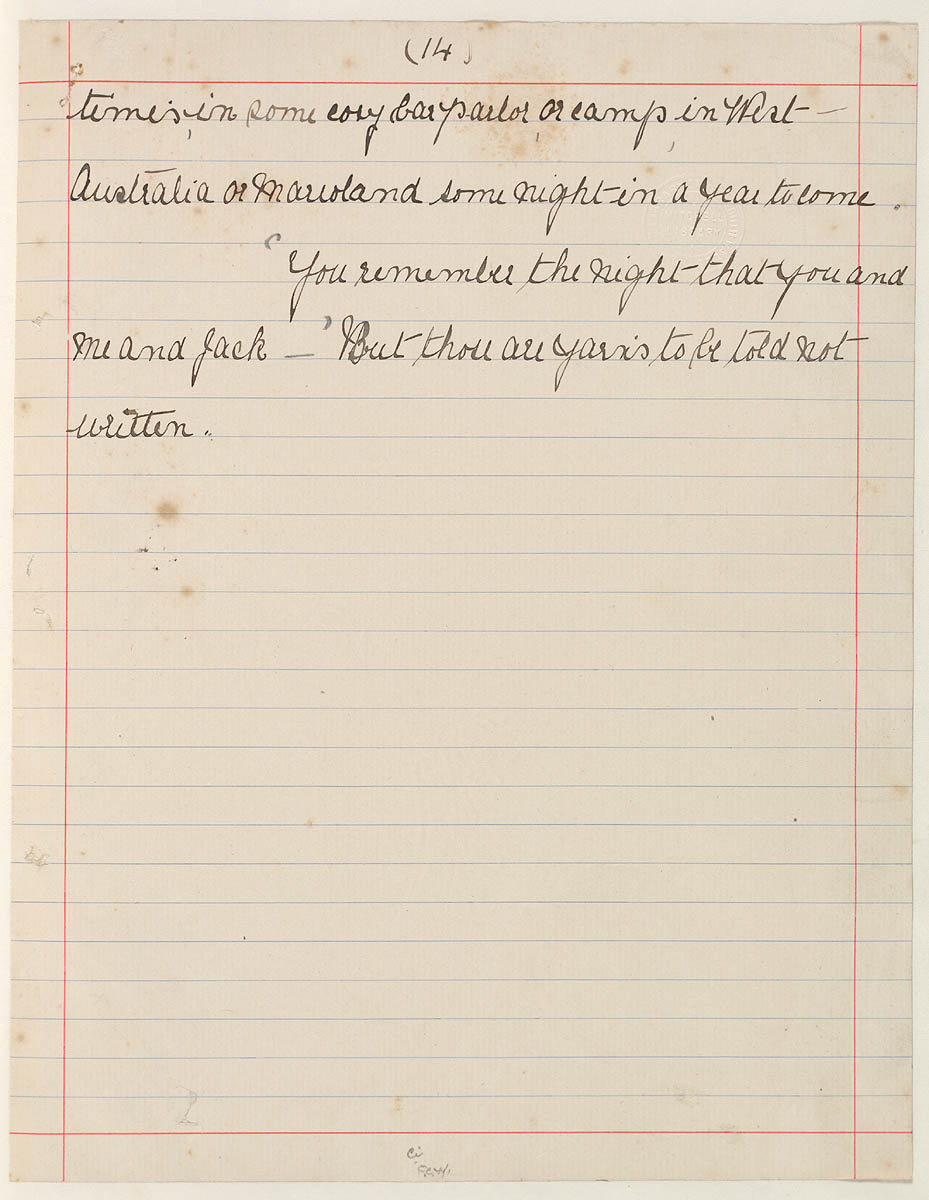 (14)
times, in some cosy bar parlor, or camp, in West-
Australia or Maoriland some night in a year to come.
"You remember the night that you and
me and Jack — " But those are yarns to be told not
written.